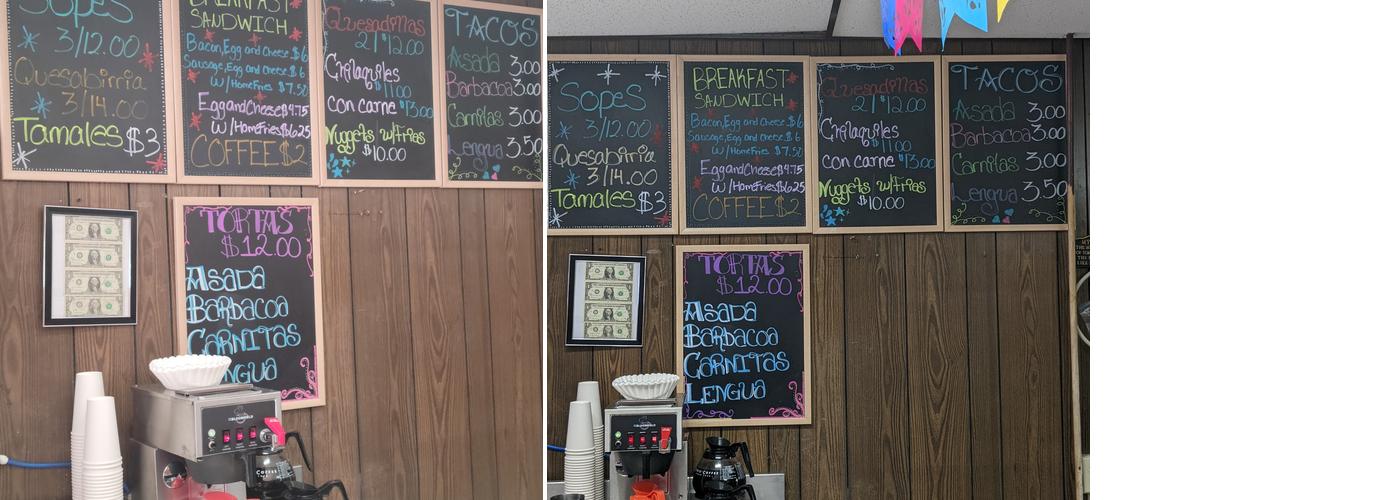 Sopes
3/12.00
Quesabirria
3/14.00
Tamales $3
BREAKFAST
SANDWICH
Bacon, Egg and Cheese $6
Sausage, Egg and Cheese $6
W/HomeFries $7.50
Egg and Cheese $4.75
W/HomeFries $6.25
COFFEE $2
Quesadillas
2/$12.00
Chilaquiles
$11.00
con carne $13.00
Nuggets w/fries
$10.00
TACOS
Asada 3.00
Barbacoa 3.00
Carnitas 3.00
Lengua 3.50
TORTAS
$12.00
ASADA
BARBACOA
CARNITAS
LENGUA
Sopes
3/12.00
Quesabirria
3/14.00
Tamales $3
BREAKFAST
SANDWICH
Bacon, Egg and Cheese $6
Sausage, Egg and Cheese $6
W/HomeFries $7.50
Egg and Cheese $4.75
W/HomeFries $6.25
COFFEE $2
Quesadillas
2/$12.00
Chilaquiles
$11.00
con carne $13.00
Nuggets w/fries
$10.00
TACOS
Asada 3.00
Barbacoa 3.00
Carnitas 3.00
Lengua 3.50
TORTAS
$12.00
ASADA
BARBACOA
CARNITAS
LENGUA